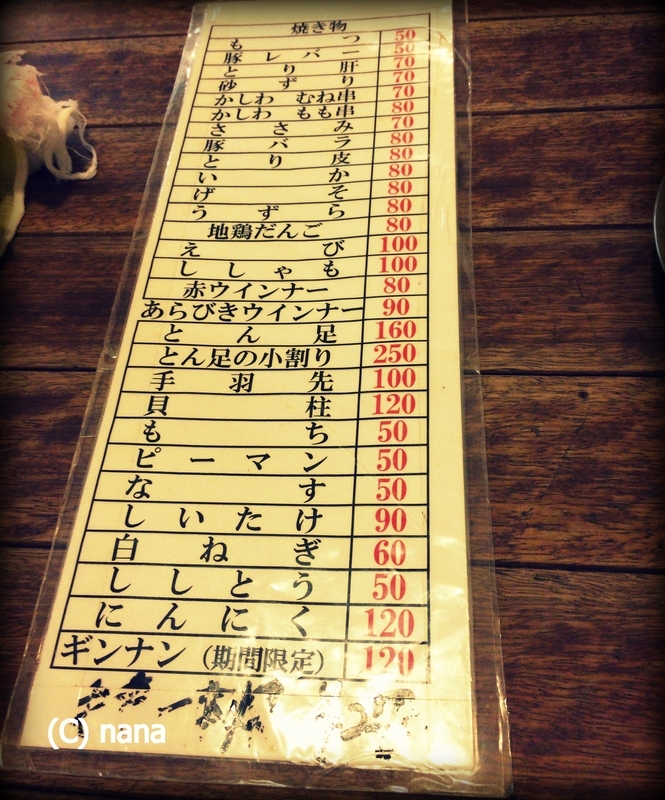 焼き物
もつ 50
豚レバー 50
とり肝 70
砂ずり 70
かしわ むね串 70
かしわ もも串 80
ささみ 70
豚バラ 80
とり皮 80
いか 80
げそ 80
うずら 80
地鶏だんご 80
えび 100
ししゃも 100
赤ウインナー 80
あらびきウインナー 90
とん足 160
とん足の小割り 250
手羽先 100
貝柱 120
もち 50
ピーマン 50
なす 50
しいたけ 90
白ねぎ 60
ししとう 50
にんにく 120
ギンナン (期間限定) 120
(C) nana